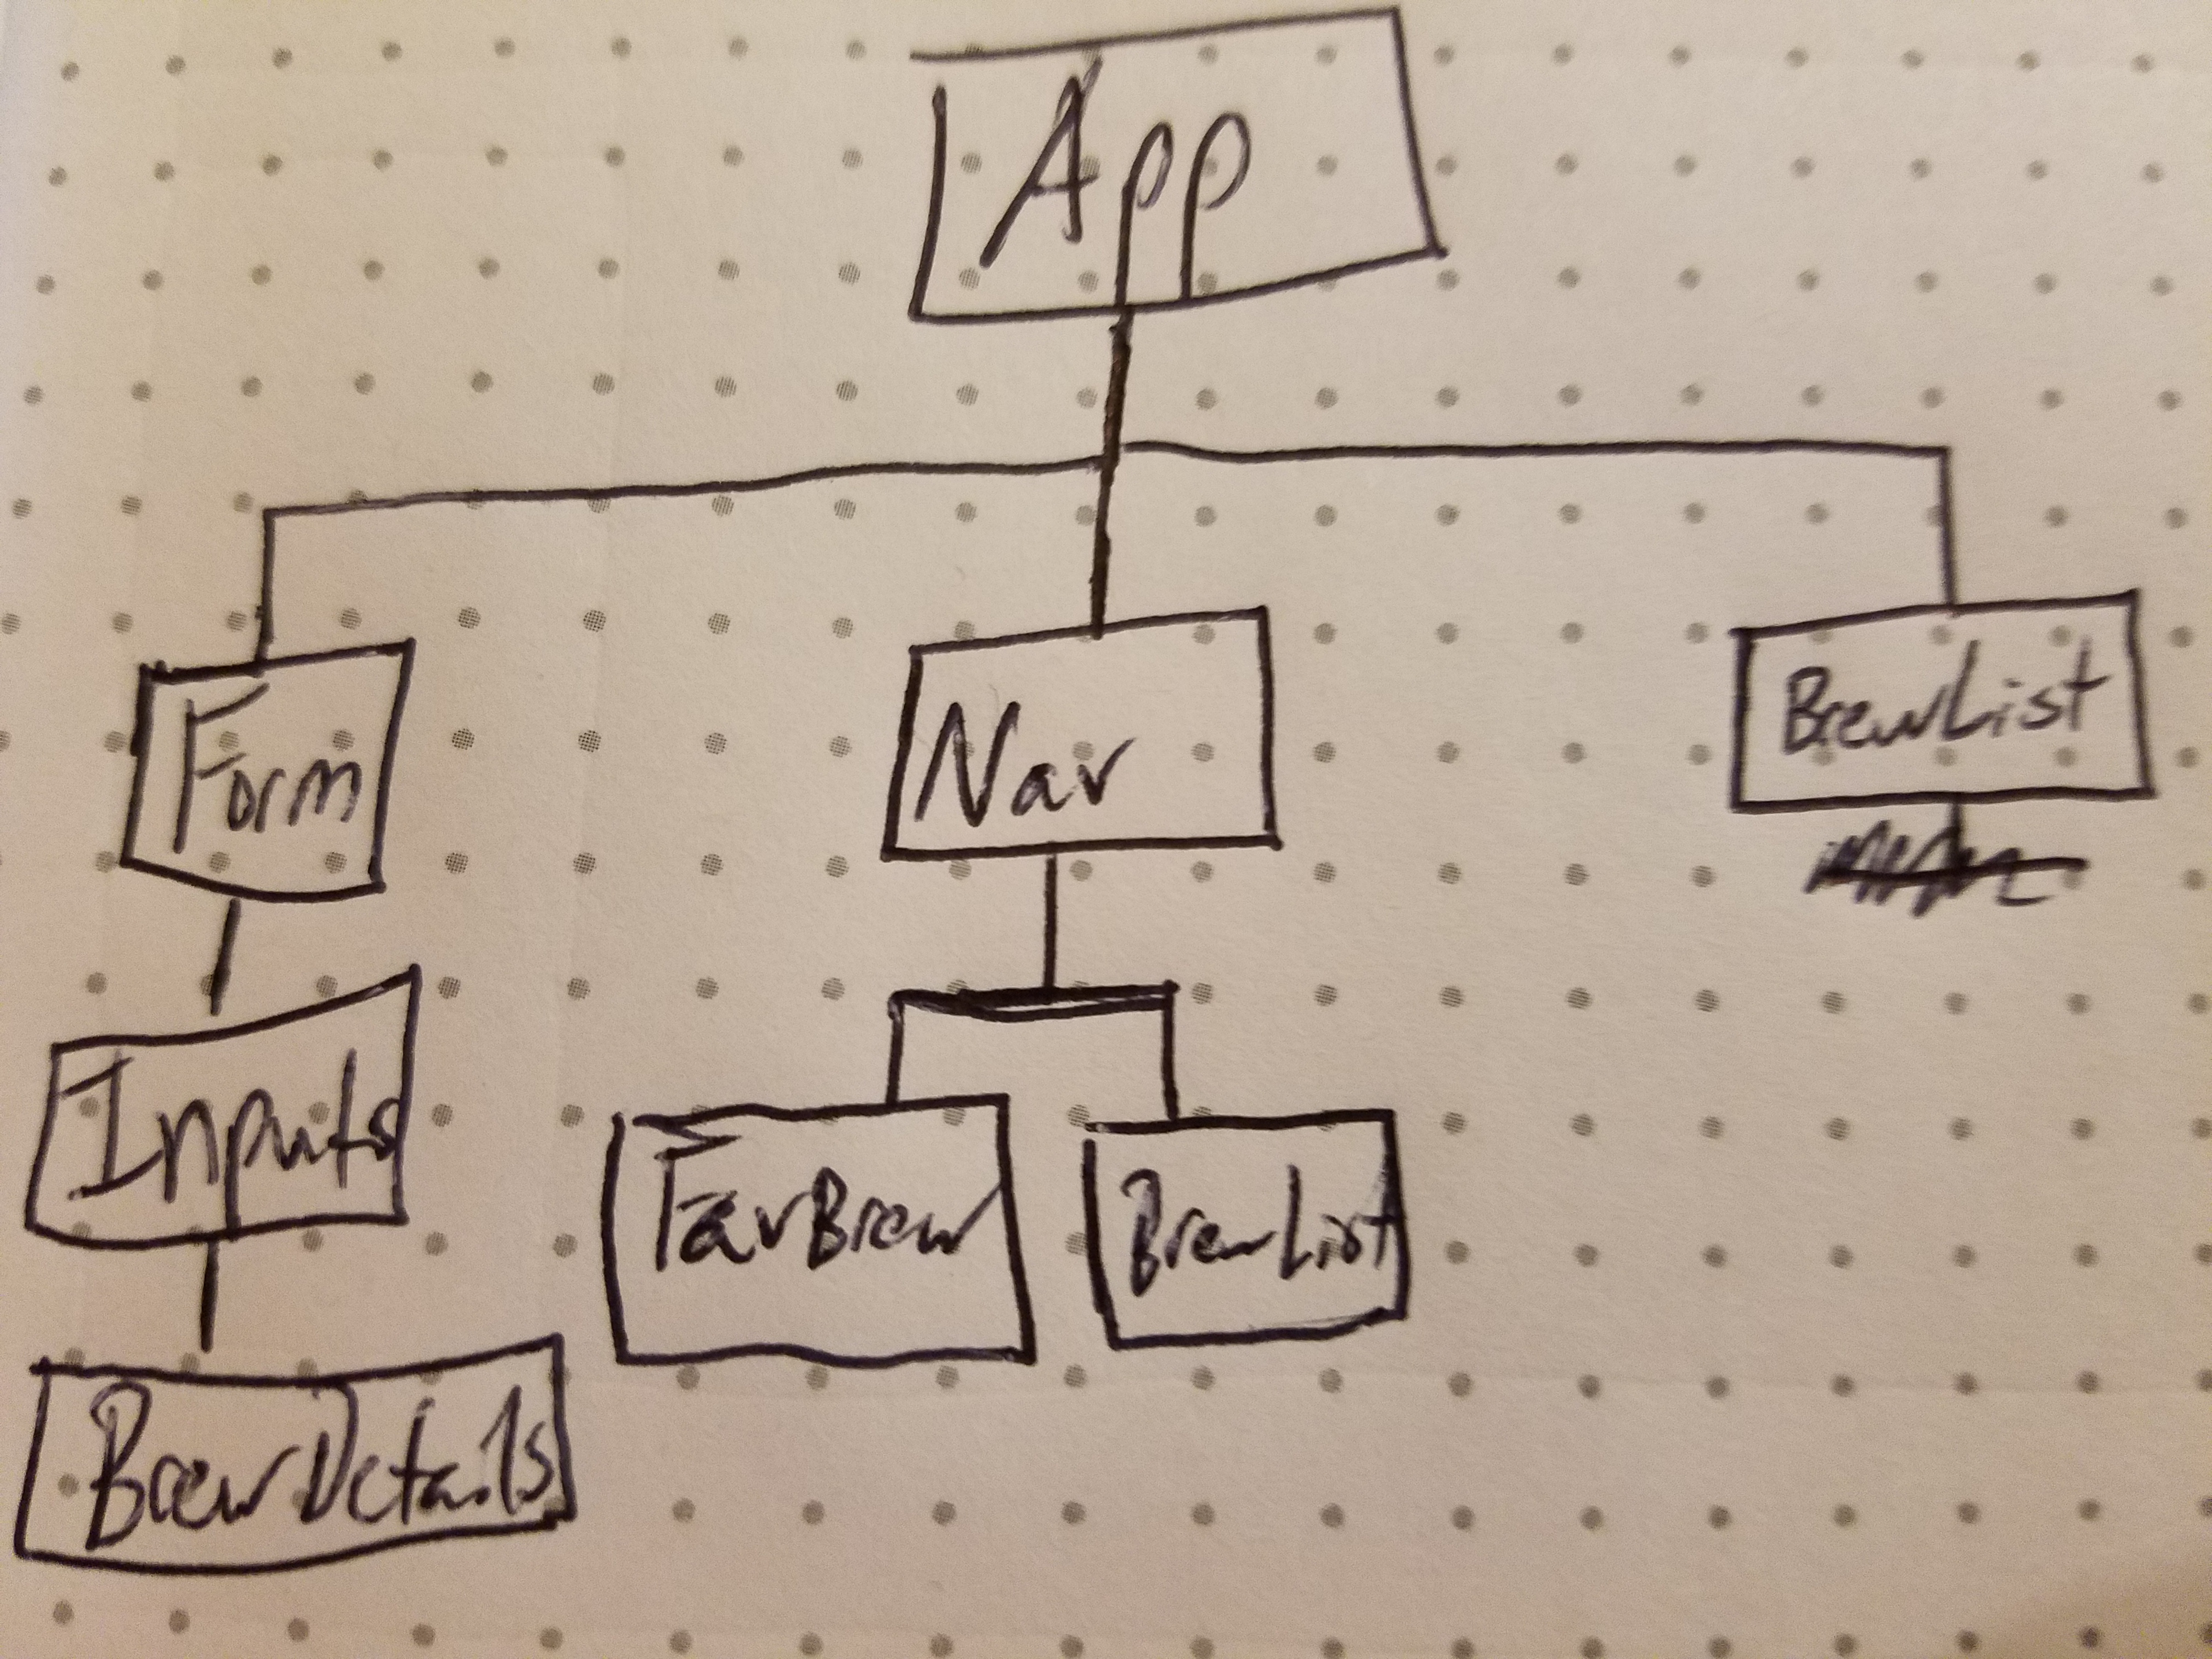 App
Form
Nav
BrewList
Inputs
FavBrew
BrewList
BrewDetails